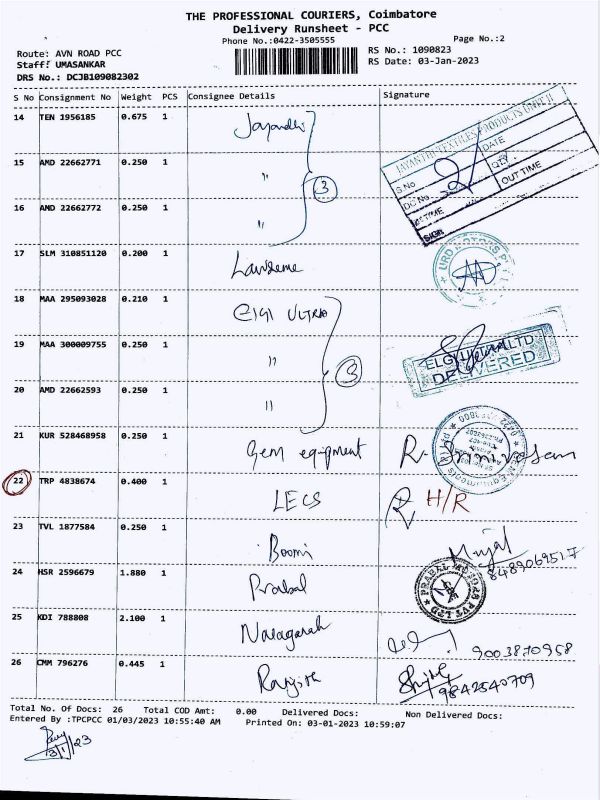 THE PROFESSIONAL COURIERS, Coimbatore
Delivery Runsheet - PCC
Phone No.:0422-3505555
Page No.:2
Route: AVN ROAD PCC
RS No.: 1090823
Staff: UMASANKAR
RS Date: 03-Jan-2023
DRS No.: DCJB109082302
S No Consignment No Weight PCS Consignee Details Signature
14 TEN 1956185 0.675 1
JAYANTHI TEXTILES PRODUCTS UNIT II
S.No DATE
DC No QTY
IN TIME OUT TIME
SIGN
15 AMD 22662771 0.250 1 "
3
16 AMD 22662772 0.250 1 "
17 SLM 310851120 0.200 1
18 MAA 295093028 0.210 1 ELGI ULTRA
19 MAA 300009755 0.250 1 "
3
DELIVERED
20 AMD 22662593 0.250 1 "
21 KUR 528468958 0.250 1 Gem eq-pment R. Srinivasan
22 TRP 4838674 0.400 1 LECS R H/R
23 TVL 1877584 0.250 1 Boomi
8489069517
24 HSR 2596679 1.880 1 Prabal
PRABAL MOTORS PVT LTD
25 KDI 788808 2.100 1
9003870958
26 CMM 796276 0.445 1 Ranjith
9842540709
Total No. Of Docs: 26 Total COD Amt: 0.00 Delivered Docs: Non Delivered Docs:
Entered By :TPCPCC 01/03/2023 10:55:40 AM Printed On: 03-01-2023 10:59:07
3/1/23